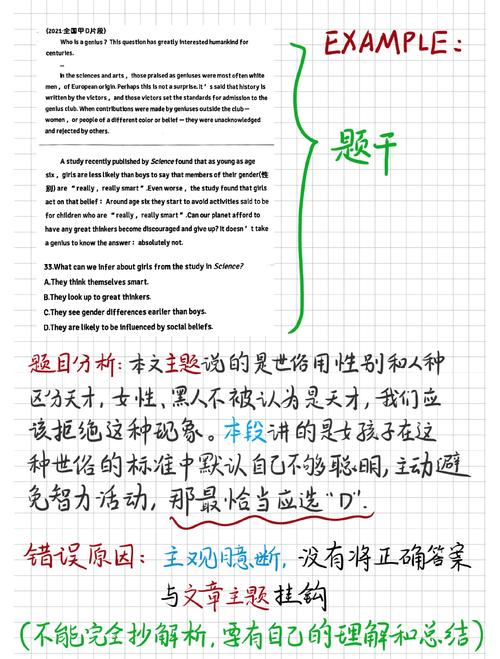 (2021·全国甲D片段)
Who is a genius? This question has greatly interested humankind for
centuries.
...
In the sciences and arts, those praised as geniuses were most often white
men, of European origin. Perhaps this is not a surprise. It's said that history is
written by the victors, and those victors set the standards for admission to the
genius club. When contributions were made by geniuses outside the club —
women, or people of a different color or belief — they were unacknowledged
and rejected by others.
A study recently published by Science found that as young as age
six, girls are less likely than boys to say that members of their gender(性
别) are "really, really smart". Even worse, the study found that girls
act on that belief: Around age six they start to avoid activities said to be
for children who are "really, really smart". Can our planet afford to
have any great thinkers become discouraged and give up? It doesn't take
a genius to know the answer: absolutely not.
33.What can we infer about girls from the study in Science?
A.They think themselves smart.
B.They look up to great thinkers.
C.They see gender differences earlier than boys.
D.They are likely to be influenced by social beliefs.
EXAMPLE:
题干
题目分析:本文主题说的是世俗用性别和人种
区分天才,女性、黑人不被认为是天才,我们应
该拒绝这种现象。本段讲的是女孩子在这
种世俗的标准中默认自己不够聪明,主动避
免智力活动,那最恰当应选"D".
错误原因:主观臆断,没有将正确答案
与文章主题挂钩
(不能完全抄解析,要有自己的理解和总结)